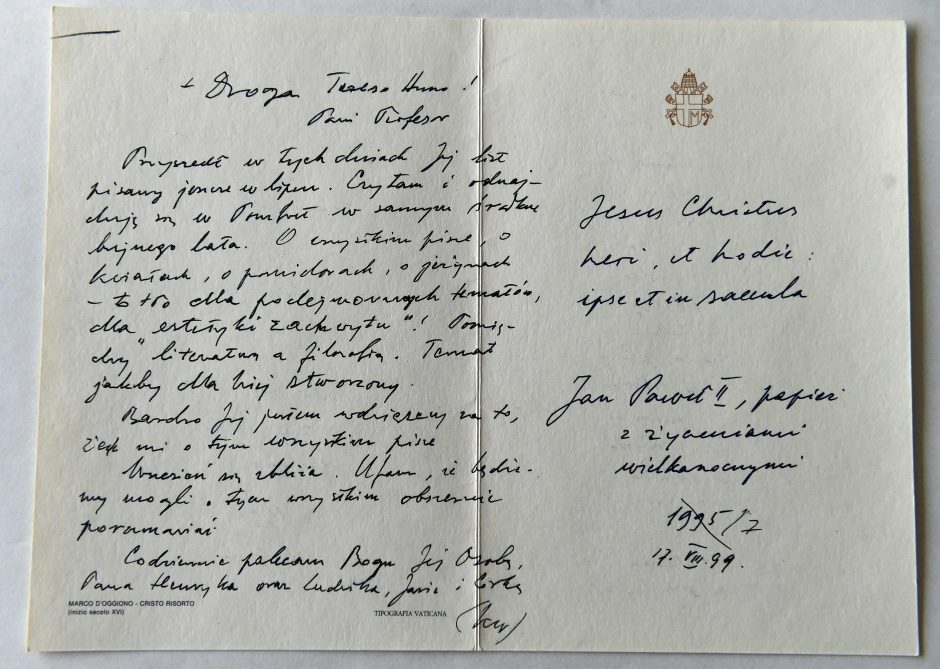 + Droga Tereso Anno!
Pani Profesor
Przyszedł w tych dniach Jej list
pisany jeszcze w lipcu. Czytam i odnaj-
duję się w Pomfret w samym środku
bujnego lata. O wszystkim pisze, o
kwiatach, o pomidorach, o jeżynach
– to tło dla podejmowanych tematów,
dla „estetyki zachwytu”! Pomię-
dzy literaturą a filozofią. Temat
jakby dla Niej stworzony.
Bardzo Jej jestem wdzięczny za to,
że mi o tym wszystkim pisze
Wrzesień się zbliża. Ufam, że będzie-
my mogli o tym wszystkim obszernie
porozmawiać
Codziennie polecam Bogu Jej Osobę,
Pana Henryka oraz Ludwika, Jasia i Córkę
MARCO D'OGGIONO - CRISTO RISORTO
(inizio secolo XVI)
TIPOGRAFIA VATICANA
Jesus Christus
heri, et hodie:
ipse et in saecula
Jan Paweł II, papież
z życzeniami
wielkanocnymi
1995/7
17. VIII. 99.